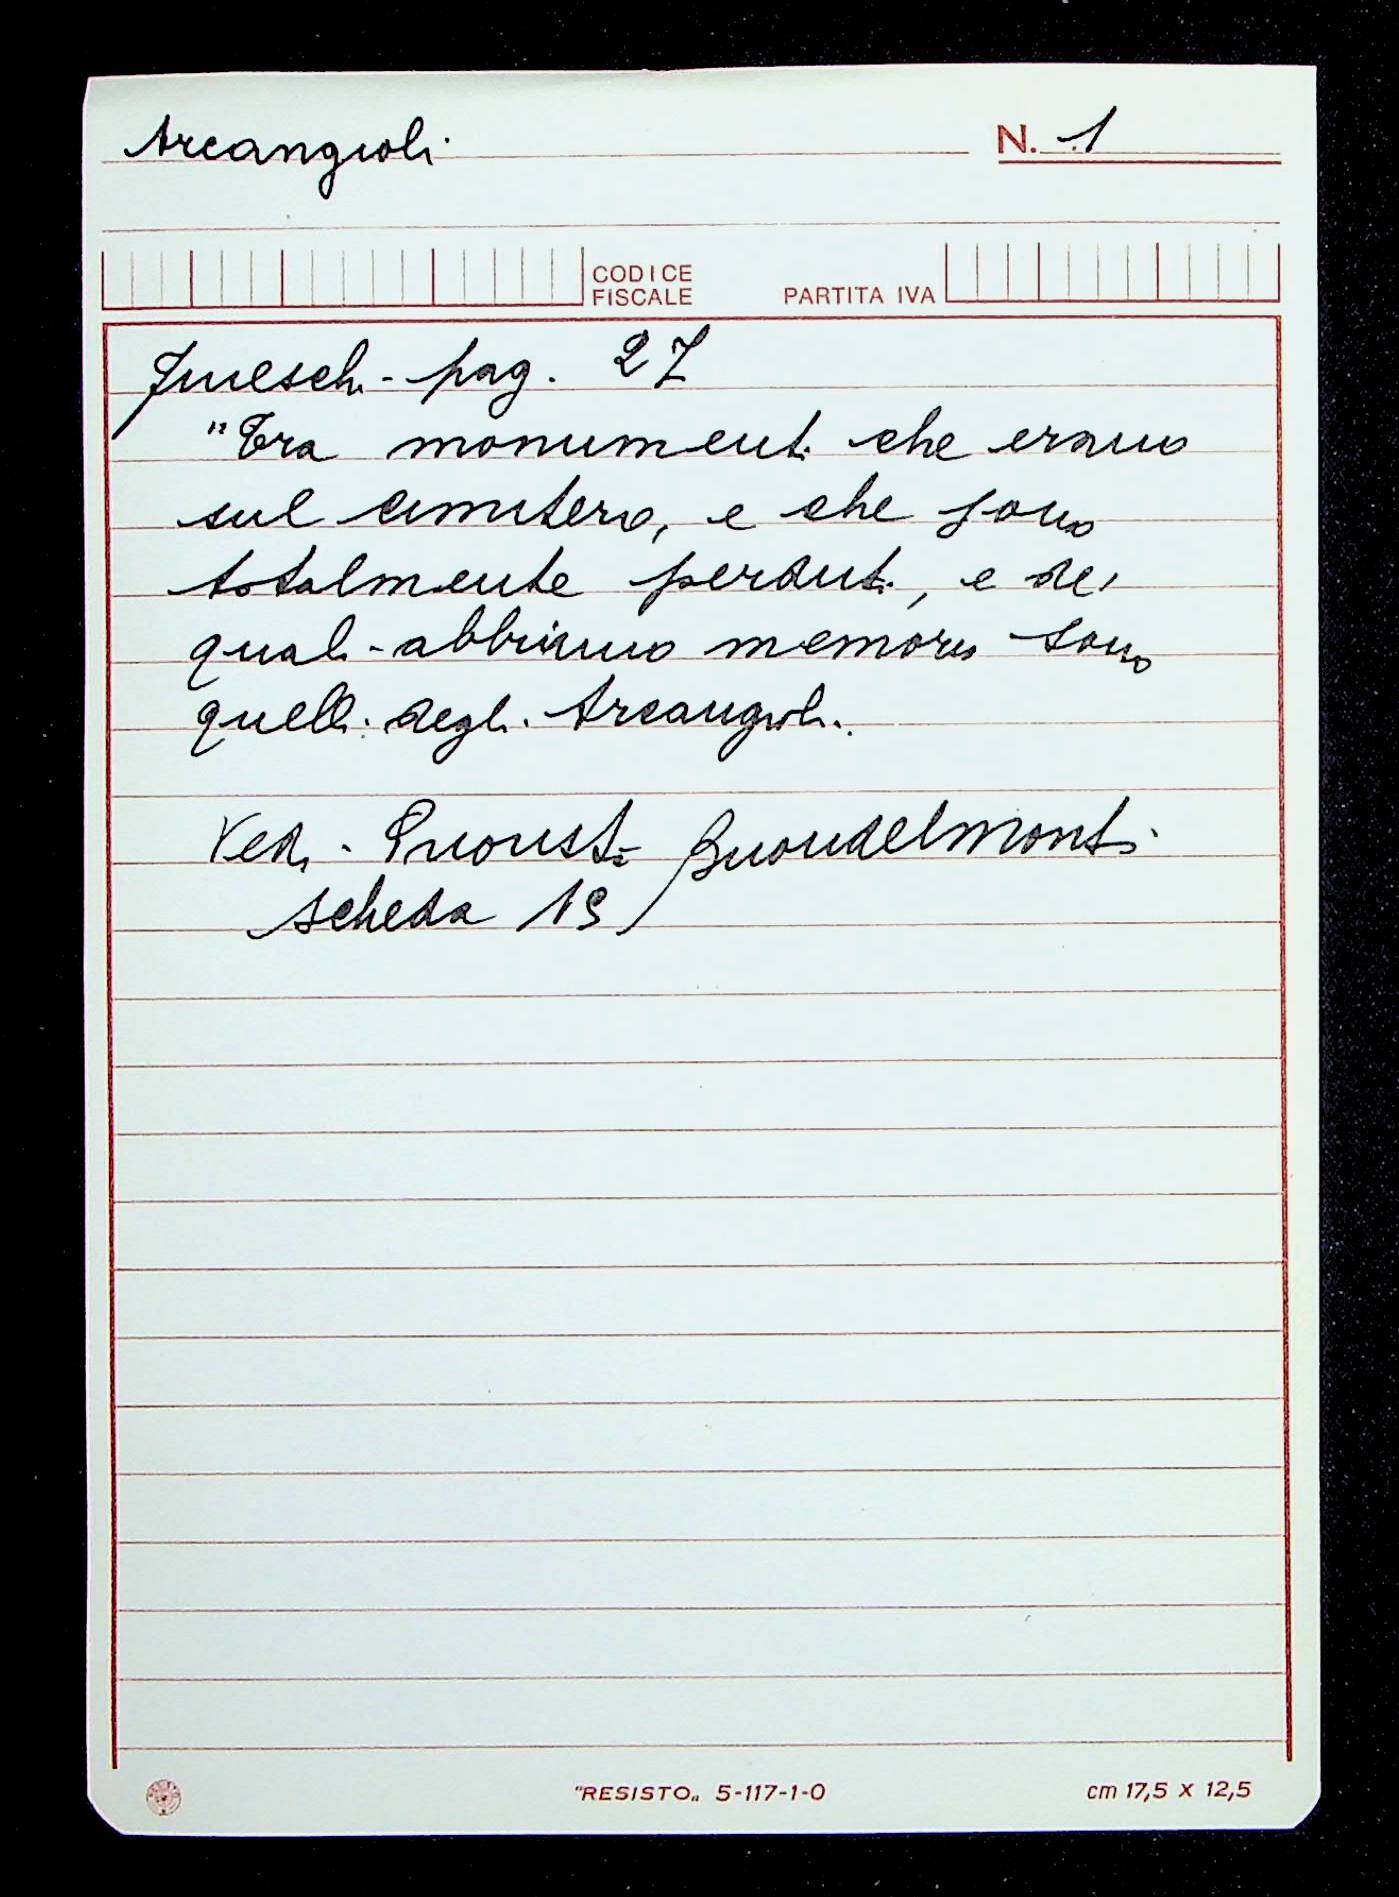 Arcangioli
N. 1
CODICE
FISCALE
PARTITA IVA
pag. 27
"Tra monumenti che erano
sul cimitero, e che sono
totalmente perduti, e dei
quali abbiamo memoria sono
quelli degli Arcangioli.
Vedi Buondelmonti
scheda 19
"RESISTO" 5-117-1-0
cm 17,5 x 12,5